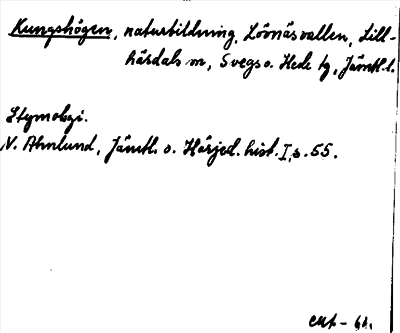 Kungshögen, naturbildning, Lövnäsvallen, Lill-
härdals sn, Svegs o. Hede tg, Jämtl. l.
Etymologi.
N. Ahnlund, Jämtl. o. Härjed. hist. I, s. 55.